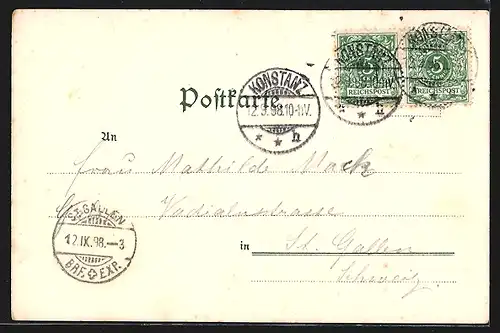 KONSTANZ
5
REICHSPOST
KONSTANZ
5
REICHSPOST
KONSTANZ
12.9.98.10-11V.
* * h
Postkarte
An
Frau Mathilde Mack
Vadianstrasse
in St. Gallen
Schweiz
ST. GALLEN
12.IX.98.–3
BRF. EXP.